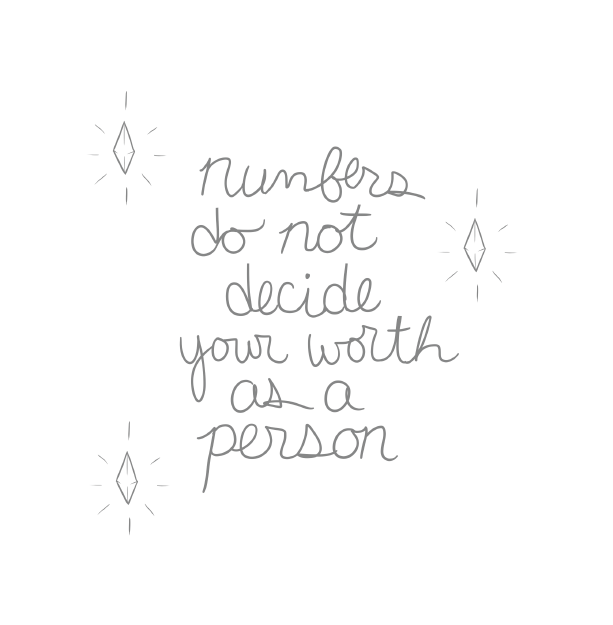 numbers
do not
decide
your worth
as a
person